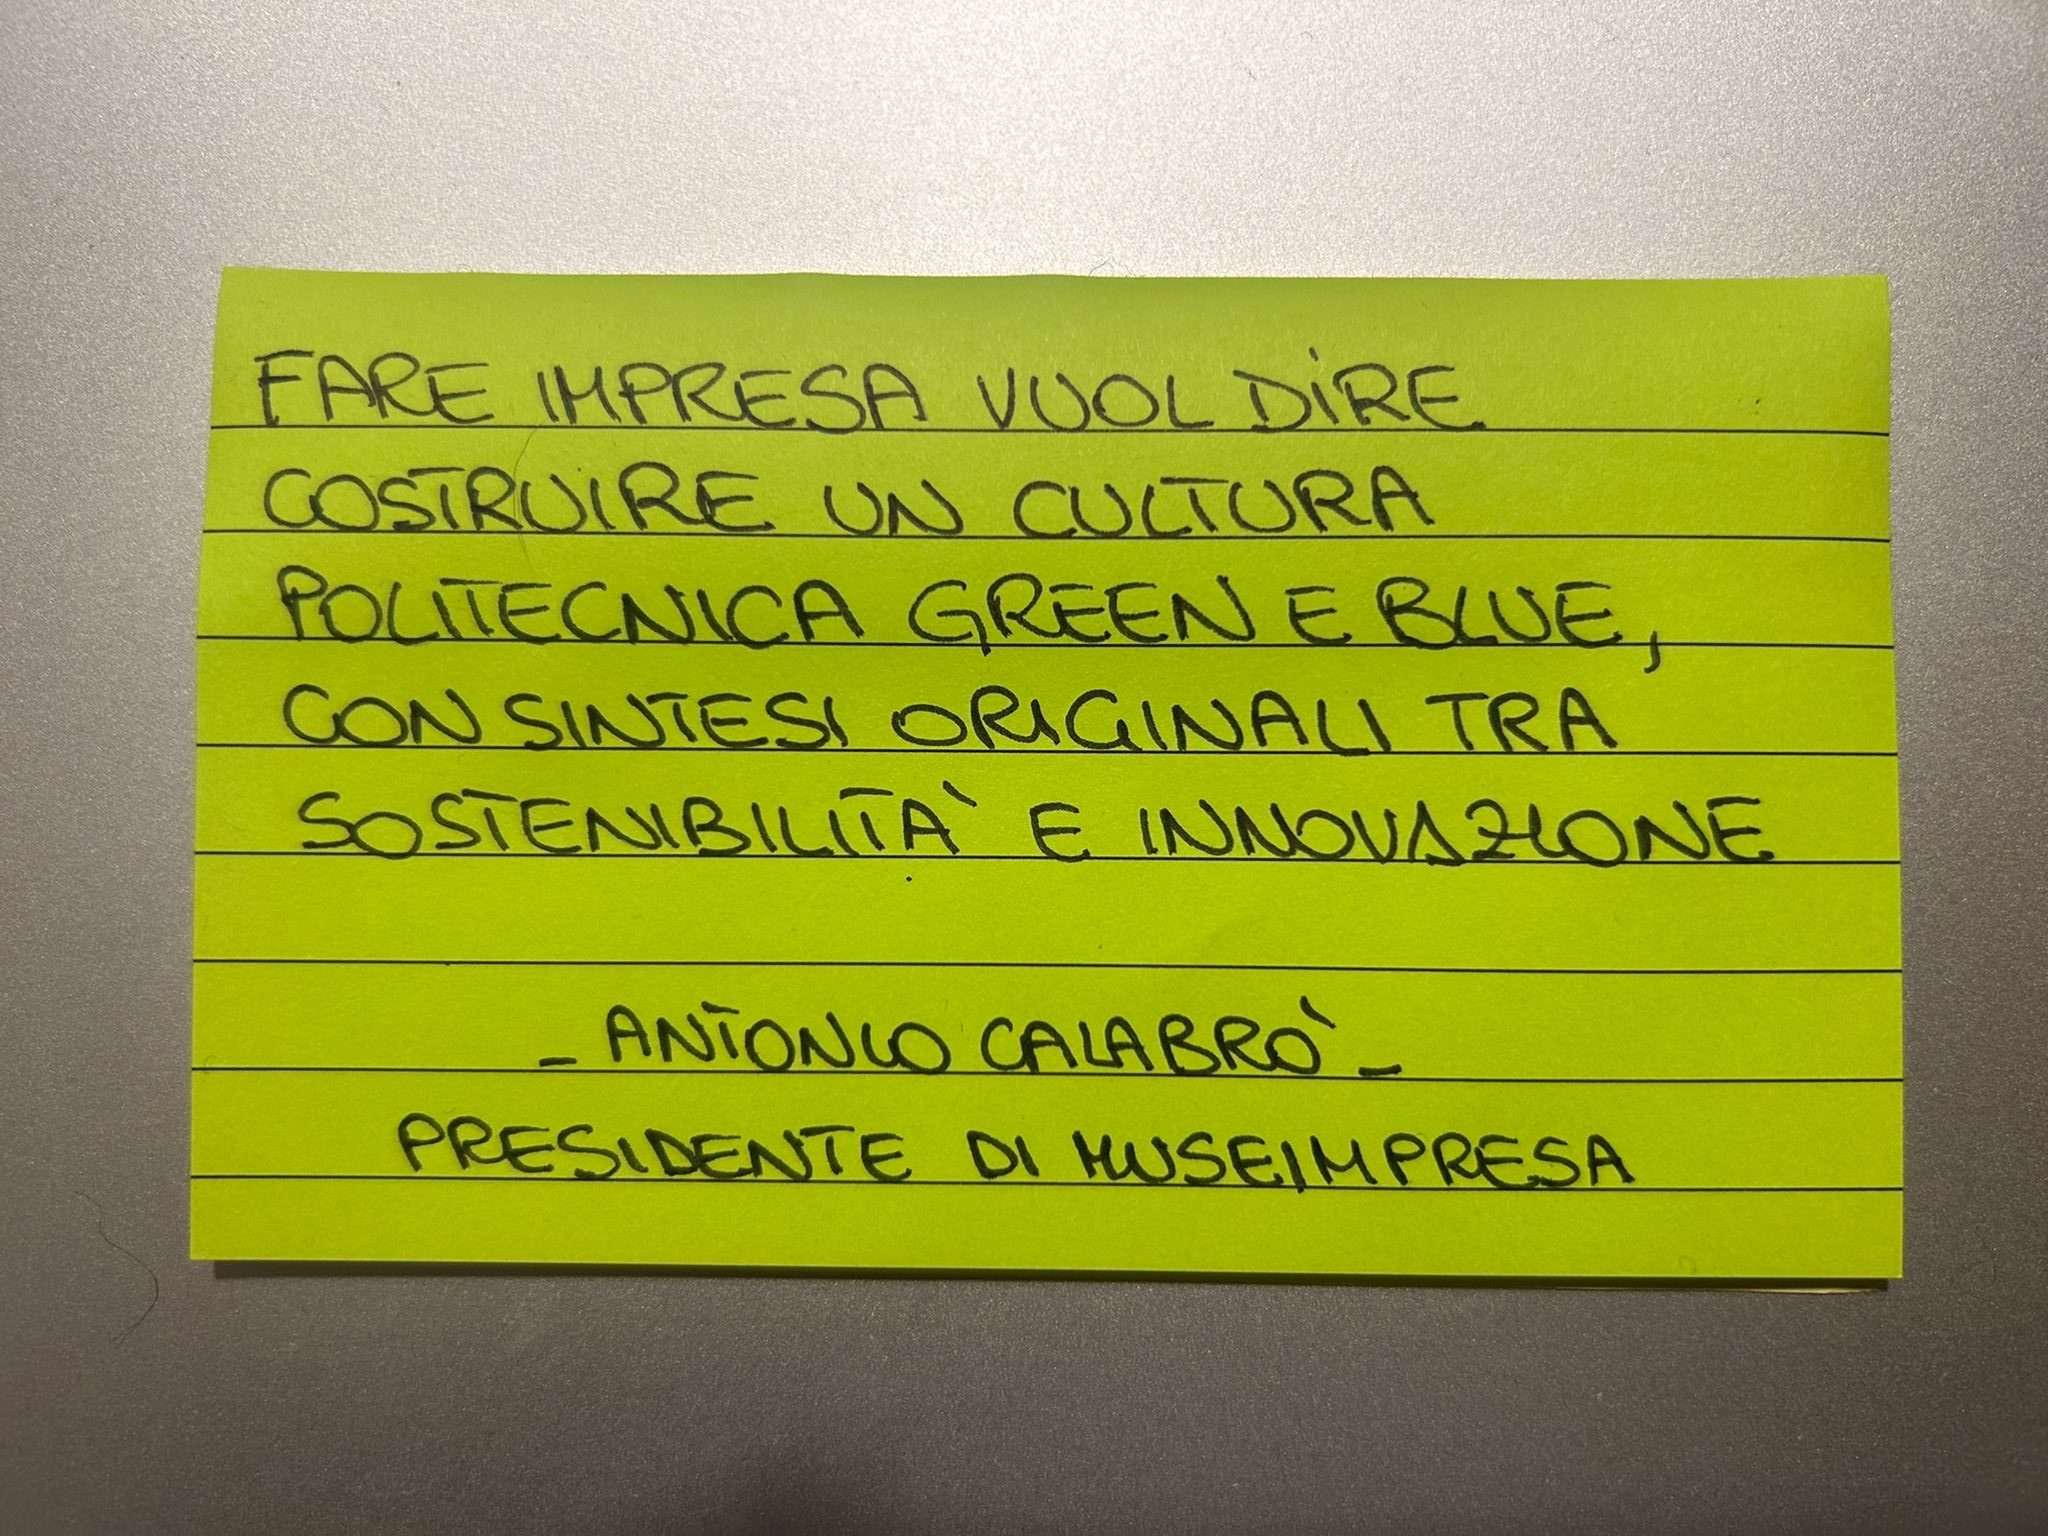 FARE IMPRESA VUOL DIRE
COSTRUIRE UN CULTURA
POLITECNICA GREEN E BLUE,
CON SINTESI ORIGINALI TRA
SOSTENIBILITA' E INNOVAZIONE
- ANTONIO CALABRO' -
PRESIDENTE DI MUSEIMPRESA